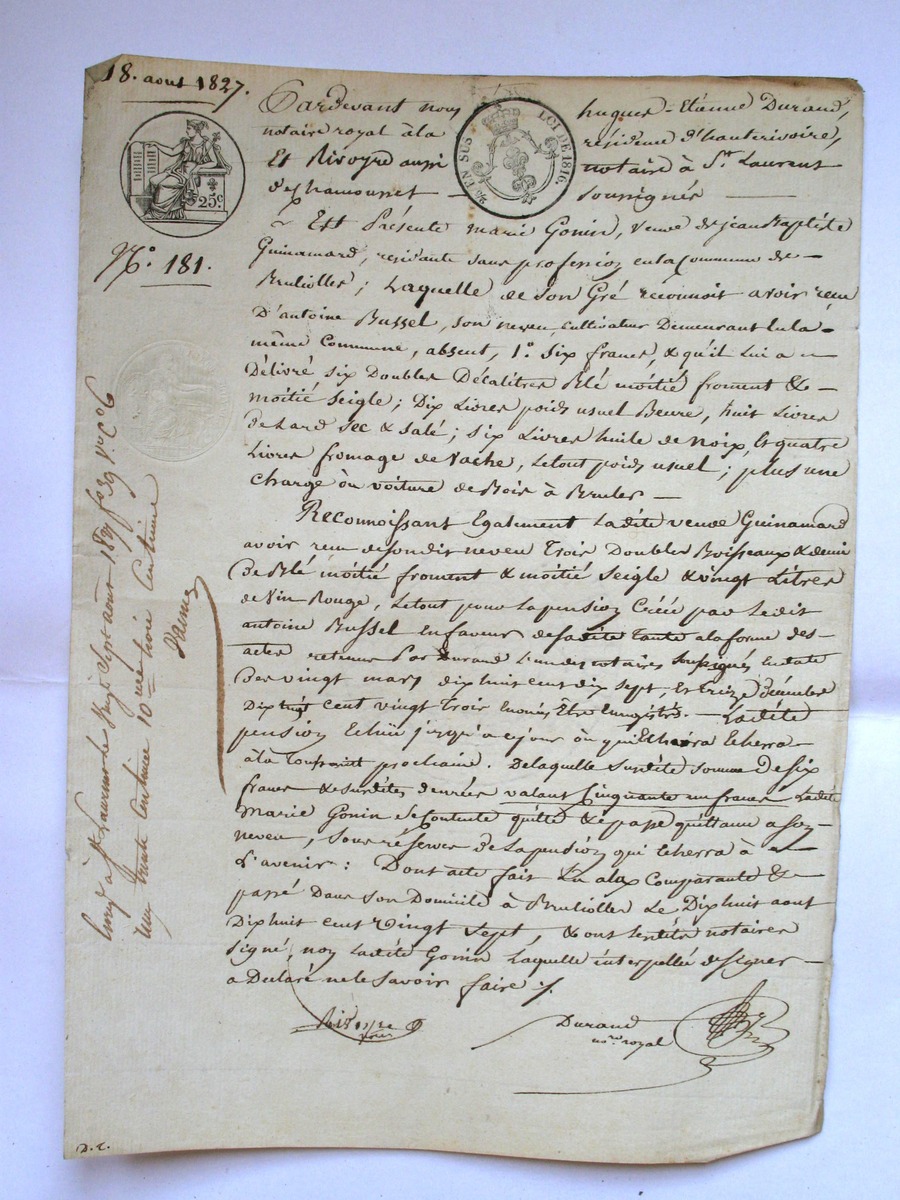 18. aout 1827.
Pardevant nous hugues-Etienne Durand,
notaire royal à la résidence d'hauterivoire,
Et Rivoyre aussi notaire à St. Laurent
de chamousset soussignés
25c
EN SUS LOI DE 1816.
Est Présente marie Gonin, veuve de jean Baptiste
N.o 181.
Guinamard, residante sans profession en la Commune de
Brulioles; Laquelle de son Gré reconnoit avoir reçu
D'antoine Bussel, son neveu, cultivateur Demeurant en la
même Commune, absent, 1.o six francs, & qu'il lui a
Délivré six Doubles Décalitres Blé moitié froment &
moitié seigle; Dix Livres poids usuel Beure, huit Livres
de Lard sec & salé; six Livres huile de noix, Et quatre
Livres fromage de vache, Le tout poids usuel; plus une
charge ou voiture de Bois à Bruler
Reconnoissant Egalement Ladite veuve Guinamard
avoir reçu de son dit neveu Trois Doubles Boisseaux & demi
De Blé moitié froment & moitié seigle & vingt Litres
de vin Rouge, Le tout pour la pension Créée par Le dit
antoine Bussel En faveur de sa dite Tante a la forme des
actes retenus Par Durand L'un des notaires soussignés En date
Des vingt mars dix huit cent dix sept, Et treize Décembre
Dix huit cent vingt Trois Enoncés Etre Enregistrés. Ladite
pension Echüe jusqu'a ce jour ou qui Echerra
à la Toussaint prochaine. De laquelle susdite somme De six
francs & susdites denrées valant Cinquante un francs Ladite
Marie Gonin se Contente quitte & passe quittance a son
neveu, sous réserves de la pension qui Echerra à
L'avenir: Dont acte fait Lu a la Comparante &
passé Dans son Domicile à Brulioles Le Dix huit aout
Dix huit cent vingt sept, & ont Lesdits notaires
signé, non Ladite Gonin Laquelle interpellée de signer
a Déclaré ne le savoir faire ./.
Rivoyre
Durand
nore royal
Enregé à St. Laurent le Vingt Sept aout 1827 fo 39 Vo Co 6
reçu trente centimes 10me trois Centimes
D. E.